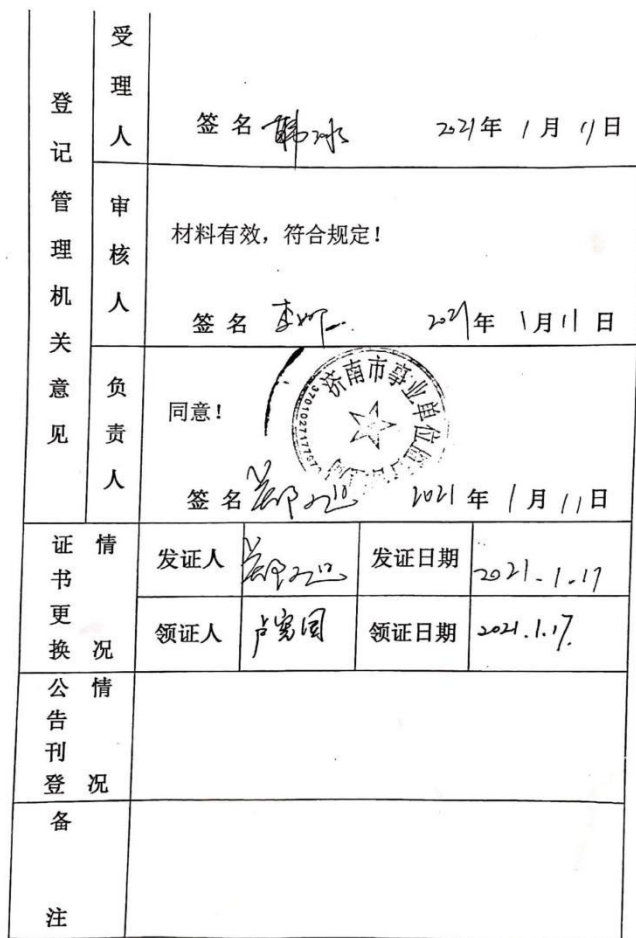 登记管理机关意见
受理人
签名 韩冰 2021年 1月 11日
审核人
材料有效，符合规定！
签名 2021年 1月11日
负责人
同意！
济南市事业单位
签名 2021年 1月 11日
证书更换情况
发证人 发证日期 2021.1.17
领证人 卢宪国 领证日期 2021.1.17.
公告刊登情况
备注